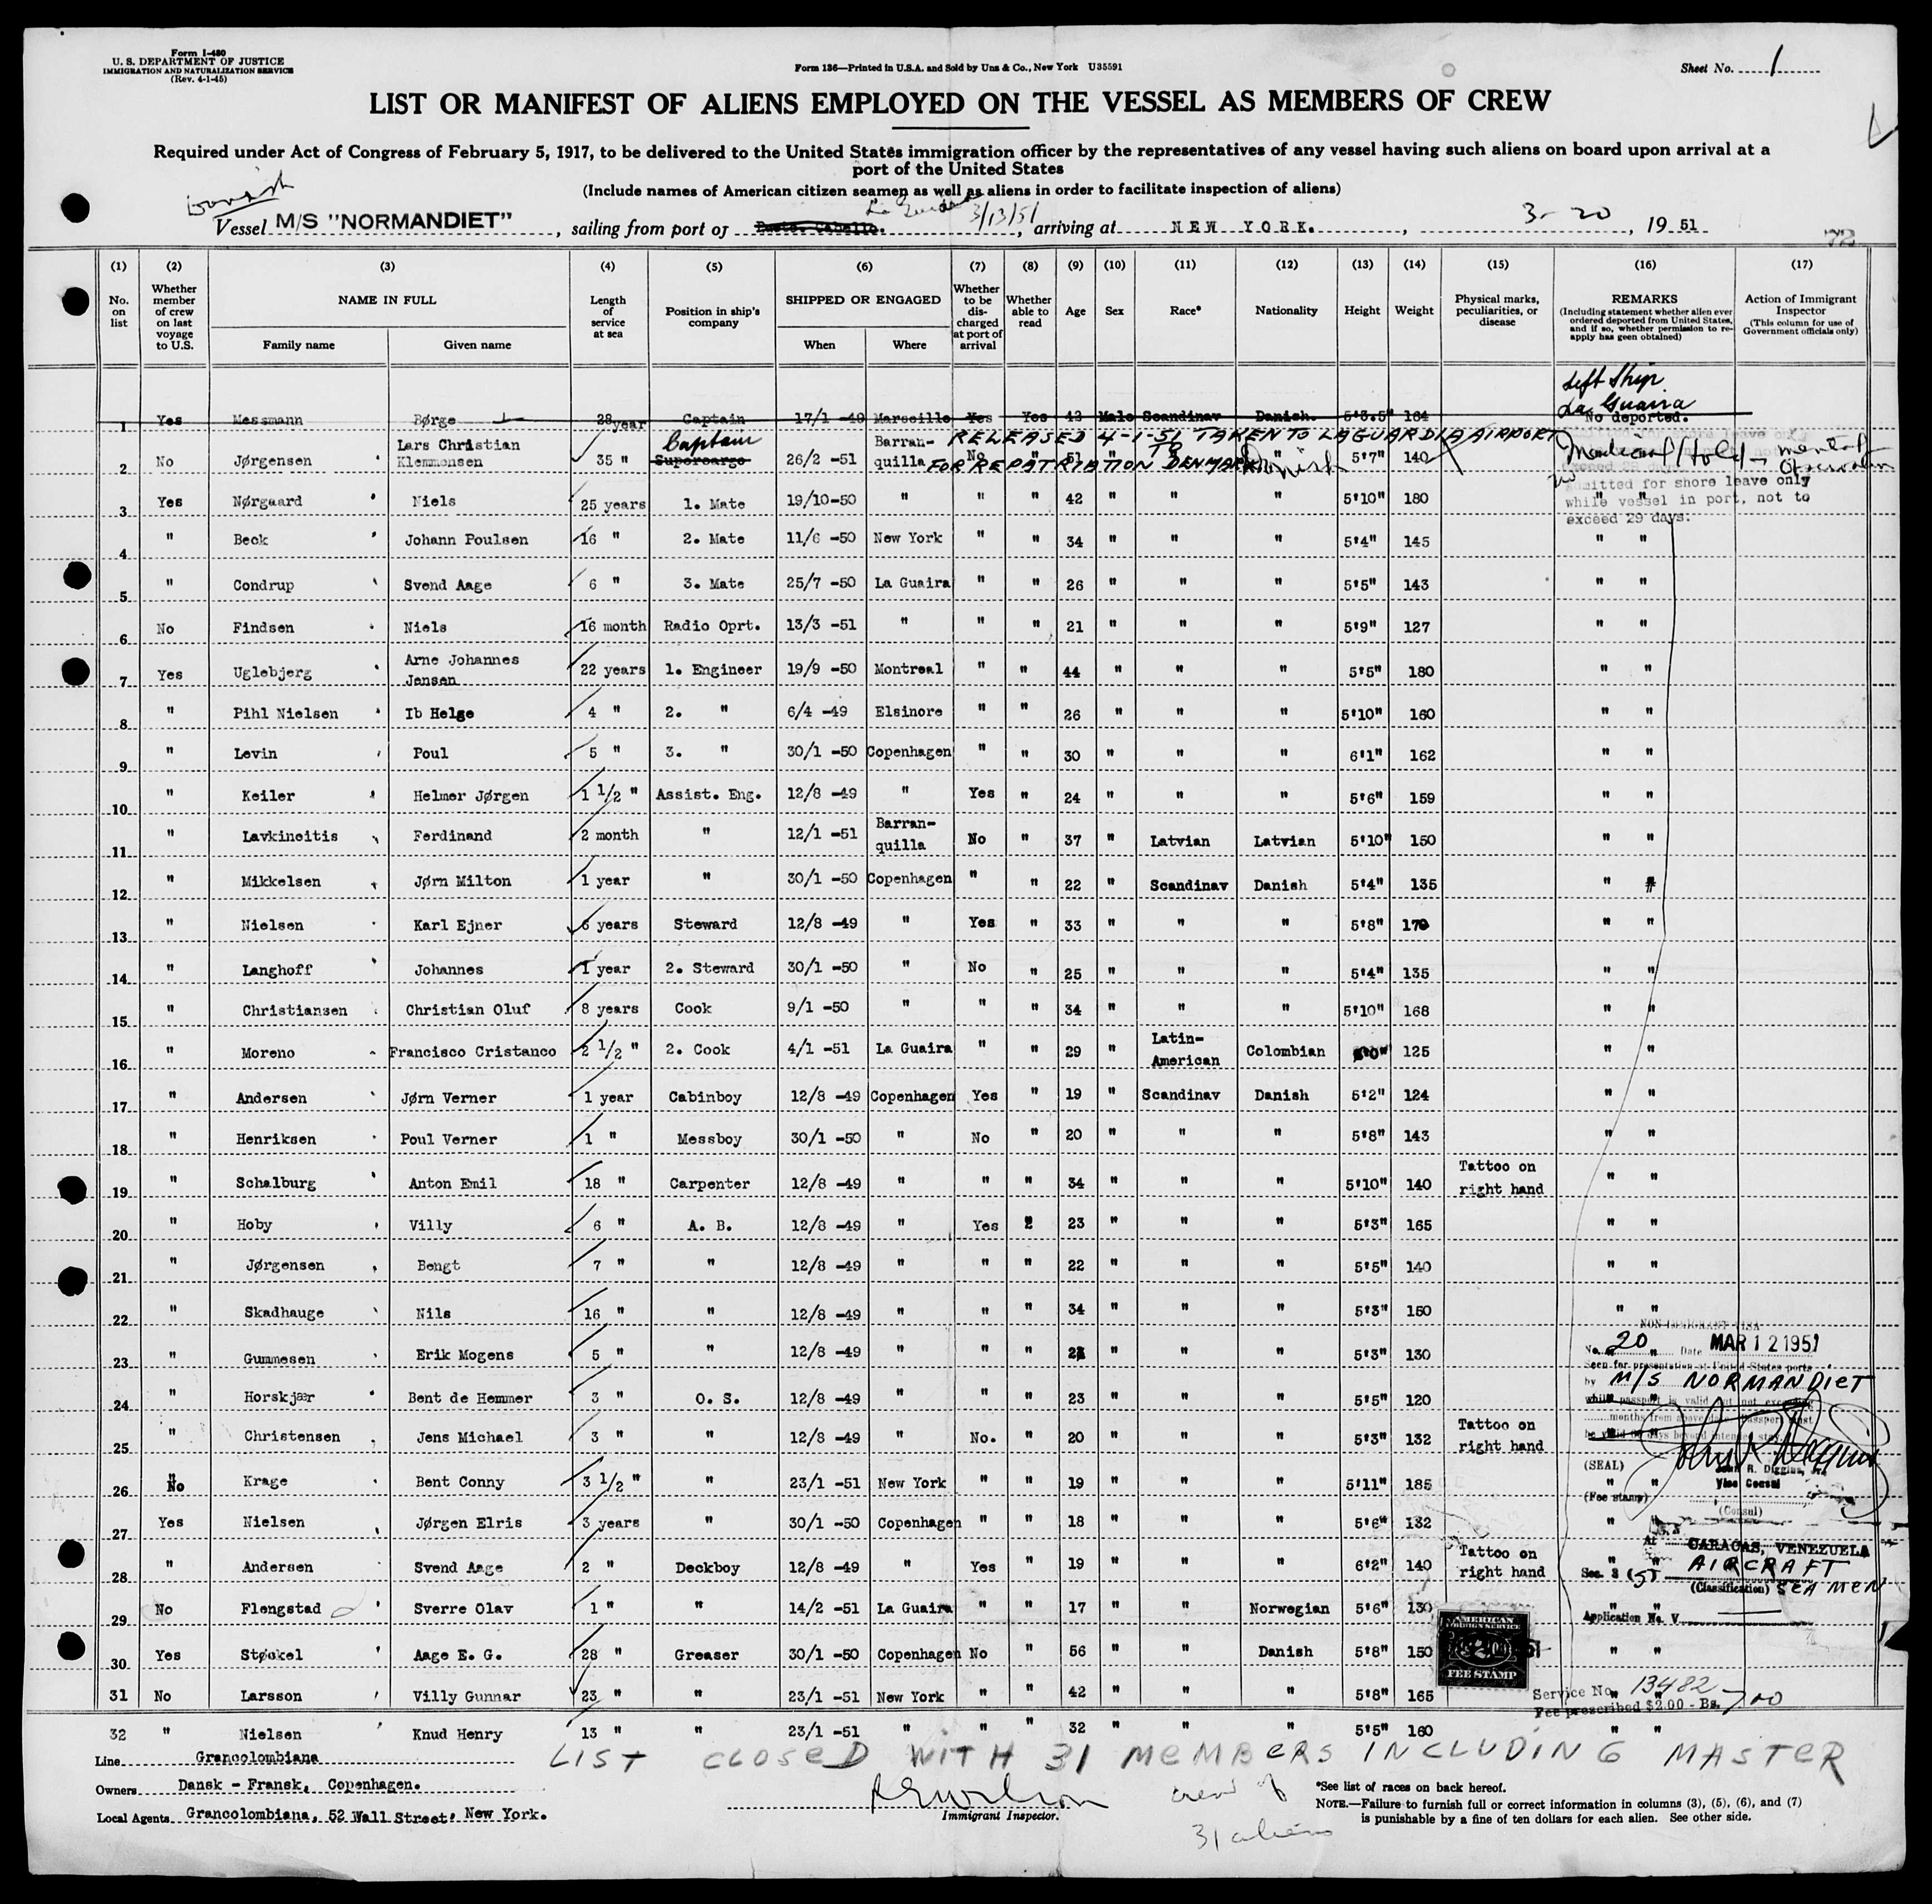 Form I-480
U. S. DEPARTMENT OF JUSTICE
IMMIGRATION AND NATURALIZATION SERVICE
(Rev. 4-1-45)
Form 136—Printed in U.S.A. and Sold by Unz & Co., New York U35591
Sheet No. 1
LIST OR MANIFEST OF ALIENS EMPLOYED ON THE VESSEL AS MEMBERS OF CREW
Required under Act of Congress of February 5, 1917, to be delivered to the United States immigration officer by the representatives of any vessel having such aliens on board upon arrival at a
port of the United States
(Include names of American citizen seamen as well as aliens in order to facilitate inspection of aliens)
Danish
Vessel M/S "NORMANDIET", sailing from port of Puerto Cabello. La Guaira 3/13/51, arriving at NEW YORK., 3-20, 19 51
(1) (2) (3) (4) (5) (6) (7) (8) (9) (10) (11) (12) (13) (14) (15) (16) (17)
No. on list
Whether member of crew on last voyage to U.S.
NAME IN FULL
Family name Given name
Length of service at sea
Position in ship's company
SHIPPED OR ENGAGED
When Where
Whether to be discharged at port of arrival
Whether able to read
Age Sex Race* Nationality Height Weight
Physical marks, peculiarities, or disease
REMARKS
(Including statement whether alien ever ordered deported from United States, and if so, whether permission to re-apply has geen obtained)
Action of Immigrant Inspector
(This column for use of Government officials only)
Left Ship
La Guaira
1 Yes Messmann Børge 28 year Captain 17/1 -49 Marseille Yes Yes 43 Male Scandinav Danish. 5'3.5" 164 No deported.
RELEASED 4-1-51 TAKEN TO LAGUARDIA AIRPORT
FOR REPATRIATION TO DENMARK
2 No Jørgensen Lars Christian Klemmensen 35 " Supercargo Captain 26/2 -51 Barran-quilla No " 51 " " " Danish 5'7" 140 Medical Hold - mental Observation
Admitted for shore leave only
while vessel in port, not to
exceed 29 days.
3 Yes Nørgaard Niels 25 years 1. Mate 19/10-50 " " " 42 " " " 5'10" 180 " "
4 " Beck Johann Poulsen 16 " 2. Mate 11/6 -50 New York " " 34 " " " 5'4" 145 " "
5 " Condrup Svend Aage 6 " 3. Mate 25/7 -50 La Guaira " " 26 " " " 5'5" 143 " "
6 No Findsen Niels 16 month Radio Oprt. 13/3 -51 " " " 21 " " " 5'9" 127 " "
7 Yes Uglebjerg Arne Johannes Jensen 22 years 1. Engineer 19/9 -50 Montreal " " 44 " " " 5'5" 180 " "
8 " Pihl Nielsen Ib Helge 4 " 2. " 6/4 -49 Elsinore " " 26 " " " 5'10" 160 " "
9 " Levin Poul 5 " 3. " 30/1 -50 Copenhagen " " 30 " " " 6'1" 162 " "
10 " Keiler Helmer Jørgen 1 1/2 " Assist. Eng. 12/8 -49 " Yes " 24 " " " 5'6" 159 " "
11 " Lavkineitis Ferdinand 2 month " 12/1 -51 Barran-quilla No " 37 " Latvian Latvian 5'10" 150 " "
12 " Mikkelsen Jørn Milton 1 year " 30/1 -50 Copenhagen " " 22 " Scandinav Danish 5'4" 135 " "
13 " Nielsen Karl Ejner 6 years Steward 12/8 -49 " Yes " 33 " " " 5'8" 170 " "
14 " Langhoff Johannes 1 year 2. Steward 30/1 -50 " No " 25 " " " 5'4" 135 " "
15 " Christiansen Christian Oluf 8 years Cook 9/1 -50 " " " 34 " " " 5'10" 168 " "
16 " Moreno Francisco Cristanco 2 1/2 " 2. Cook 4/1 -51 La Guaira " " 29 " Latin-American Colombian 125 " "
17 " Andersen Jørn Verner 1 year Cabinboy 12/8 -49 Copenhagen Yes " 19 " Scandinav Danish 5'2" 124 " "
18 " Henriksen Poul Verner 1 " Messboy 30/1 -50 " No " 20 " " " 5'8" 143 " "
19 " Schalburg Anton Emil 18 " Carpenter 12/8 -49 " " " 34 " " " 5'10" 140 Tattoo on right hand " "
20 " Hoby Villy 6 " A. B. 12/8 -49 " Yes " 23 " " " 5'3" 165 " "
21 " Jørgensen Bengt 7 " " 12/8 -49 " " " 22 " " " 5'5" 140 " "
22 " Skadhauge Nils 16 " " 12/8 -49 " " " 34 " " " 5'3" 150 " "
23 " Gummesen Erik Mogens 5 " " 12/8 -49 " " " 23 " " " 5'3" 130
24 " Horskjær Bent de Hemmer 3 " O. S. 12/8 -49 " " " 23 " " " 5'5" 120
25 " Christensen Jens Michael 3 " " 12/8 -49 " No. " 20 " " " 5'3" 132 Tattoo on right hand
26 No Krage Bent Conny 3 1/2 " " 23/1 -51 New York " " 19 " " " 5'11" 185 " "
27 Yes Nielsen Jørgen Elris 3 years " 30/1 -50 Copenhagen " " 18 " " " 5'6" 132 " "
28 " Andersen Svend Aage 2 " Deckboy 12/8 -49 " Yes " 19 " " " 6'2" 140 Tattoo on right hand " "
29 No Flengstad Sverre Olav 1 " " 14/2 -51 La Guaira " " 17 " " Norwegian 5'6" 130 " "
30 Yes Støckel Aage E. G. 28 " Greaser 30/1 -50 Copenhagen No " 56 " " Danish 5'8" 150 " "
31 No Larsson Villy Gunnar 23 " " 23/1 -51 New York " " 42 " " " 5'8" 165 " "
32 " Nielsen Knud Henry 13 " " 23/1 -51 " " " 32 " " " 5'5" 160 " "
NON-IMMIGRANT VISA
No. 20 Date MAR 12 1951
Seen for presentation at United States ports
by M/S NORMANDIET
while passport is valid but not exceeding
months from above date. Passport must
be valid 60 days beyond intended stay.
(SEAL)
John R. Diggins, Jr.
Vice Consul
(Fee stamp)
(Consul)
At CARACAS, VENEZUELA
Sec. 3 (5) AIRCRAFT
(Classification) SEAMEN
Application No. V
AMERICAN
FOREIGN SERVICE
$2.00
FEE STAMP
Service No. 13482
Fee prescribed $2.00 - Bs. 7.00
LIST CLOSED WITH 31 MEMBERS INCLUDING MASTER
Line Grancolombiana
Owners Dansk - Fransk, Copenhagen.
Local Agents Grancolombiana, 52 Wall Street, New York.
Immigrant Inspector.
crew of
31 aliens
*See list of races on back hereof.
NOTE.—Failure to furnish full or correct information in columns (3), (5), (6), and (7)
is punishable by a fine of ten dollars for each alien. See other side.